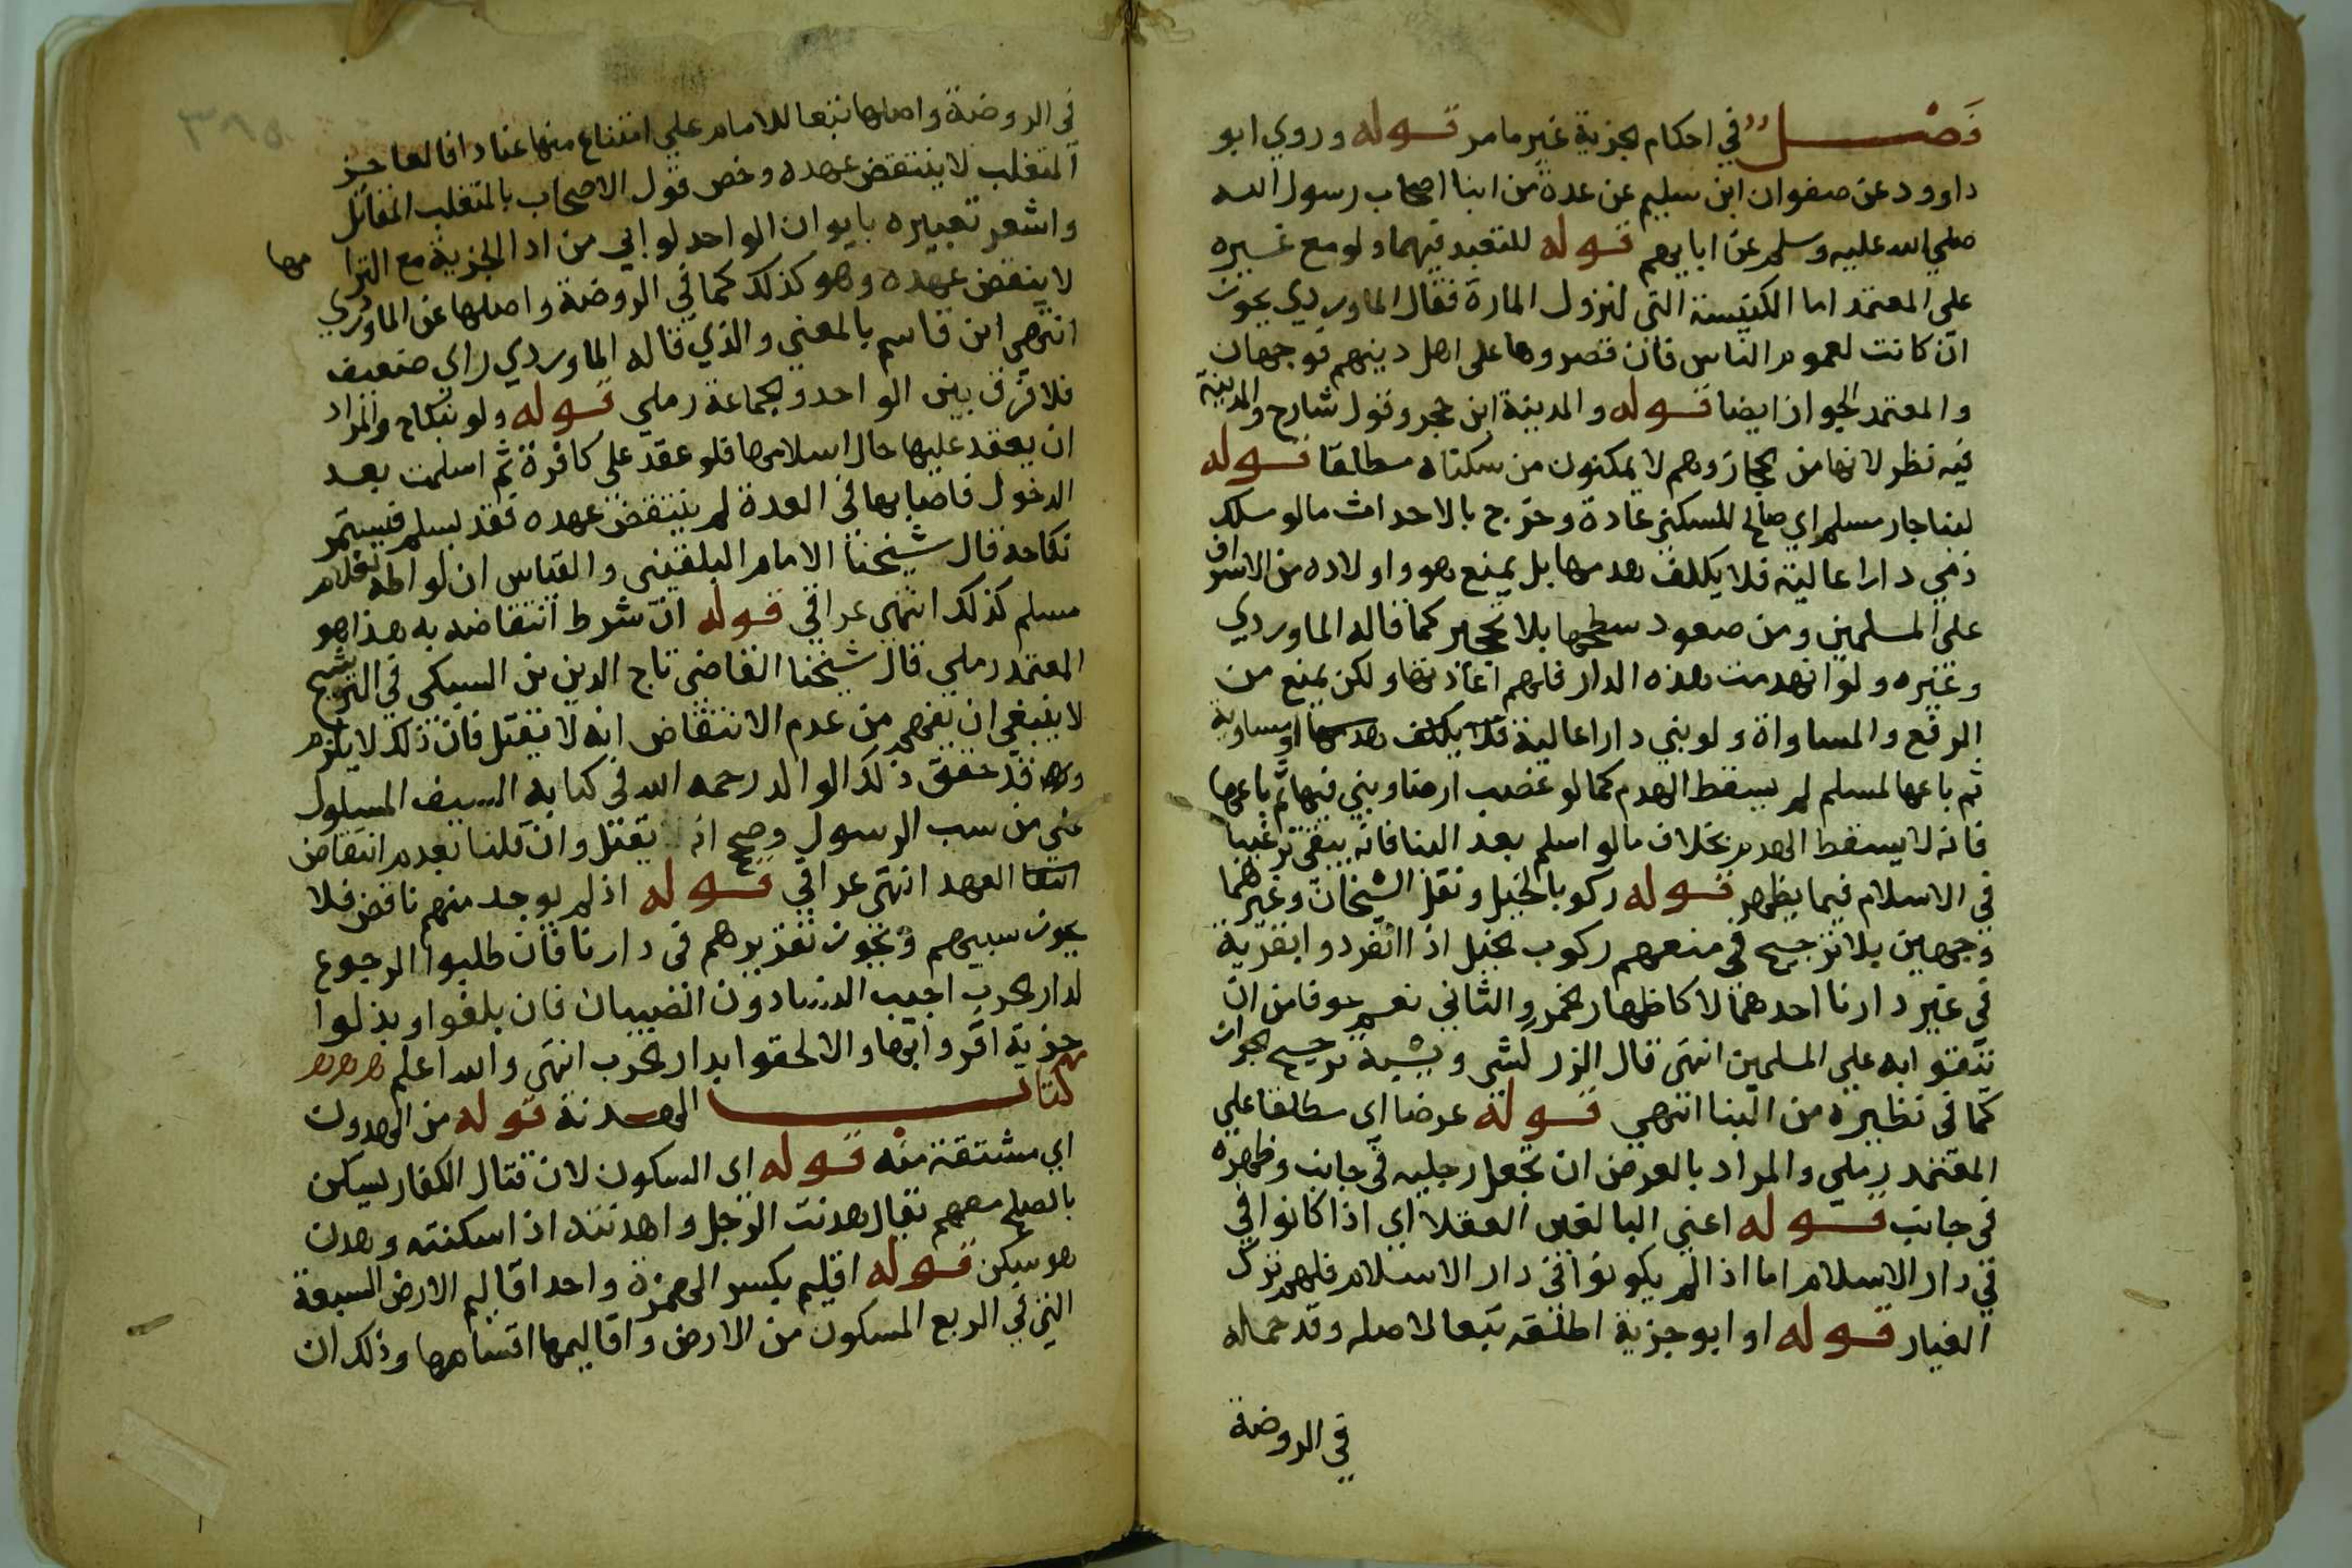 فصل في احكام الجزية غير ما مر قوله وروي ابو
داوود عن صفوان ابن سليم عن عدة من ابنا اصحاب رسول الله
صلي الله عليه وسلم عن ابايهم قوله للتعبد فيهما ولو مع غيره
علي المعتمد اما الكنيسة التي لنزول المارة فقال الماوردي يجوز
ان كانت لعموم الناس فان قصروها علي اهل دينهم فوجهان
والمعتمد الجواز ايضا قوله والمدينة ابن حجر وقول شارح والمدينة
فيه نظر لانها من الحجاز وهم لا يمكنون من سكناه مطلقا قوله
لبنا جار مسلم اي صالح للسكني عادة وخرج بالاحداث ما لو ملك
ذمي دارا عالية فلا يكلف هدمها بل يمنع هو واولاده من الاشراف
علي المسلمين ومن صعود سطحها بلا تحجير كما قاله الماوردي
وغيره ولو انهدمت هذه الدار فلهم اعادتها ولكن يمنع من
الرفع والمساواة ولو بني دارا عالية او مساوية
ثم باعها لمسلم لم يسقط الهدم كما لو غصب ارضا وبني فيها ثم باعها
فانه لا يسقط الهدم بخلاف ما لو اسلم بعد البنا فانه يبقي ترغيبا
في الاسلام فيما يظهر قوله ركوبا لخيل ونقل الشيخان وغيرهما
وجهين بلا ترجيح في منعهم ركوب الخيل اذا انفردوا بقرية
في غير دارنا احدهما لا كاظهار الخمر والثاني نعم خوفا من ان
يتقووا به علي المسلمين انتهي قال الزركشي ويشبه ترجيح الجواز
كما في نظيره من البنا انتهي قوله عرضا اي مطلقا علي
المعتمد رملي والمراد بالعرض ان يجعل رجليه في جانب وظهره
في جانب قوله اعني البالغين العقلا اي اذا كانوا في
في دار الاسلام اما اذا لم يكونوا في دار الاسلام فلهم ترك
الغيار قوله او ابو جزية اطلقه تبعا لاصله وقد حمله
في الروضة
في الروضة واصلها تبعا للامام علي امتناع منها عنادا فالعاجز
المتغلب لا ينتقض عهده وخص قول الاصحاب بالمتغلب المقاتل
واشعر تعبيره بابوا ان الواحد لو ابي من ادا الجزية مع التزامها
لا ينقض عهده وهو كذلك كما في الروضة واصلها عن الماوردي
انتهي ابن قاسم بالمعني والذي قاله الماوردي راي ضعيف
فلا فرق بين الواحد والجماعة رملي قوله ولو بنكاح والمراد
ان يعقد عليها حال اسلامها فلو عقد علي كافرة ثم اسلمت بعد
الدخول فاصابها في العدة لم ينتقض عهده فقد يسلم فيستمر
نكاحه قال شيخنا الامام البلقيني والقياس ان لواطه بغلام
مسلم كذلك انتهي عراقي قوله ان شرط انتقاضه به هذا هو
المعتمد رملي قال شيخنا القاضي تاج الدين بن السبكي في الترشيح
لا ينبغي ان يفهم من عدم الانتقاض انه لا يقتل فان ذلك لا يلزم
وقد حقق ذلك الوالد رحمه الله في كتابه السيف المسلول
علي من سب الرسول وصح انه يقتل وان قلنا بعدم انتقاض
العهد انتهي عراقي قوله اذ لم يوجد منهم ناقض فلا
يجوز سبيهم ويجوز تقريرهم في دارنا فان طلبوا الرجوع
لدار الحرب اجيب النسا دون الصبيان فان بلغوا وبذلوا
جزية اقروا بها والا لحقوا بدار الحرب انتهي والله اعلم
كتاب الهدنة قوله من الهدون
اي مشتقة منه قوله اي السكون لان قتال الكفار يسكن
بالصلح معهم يقال هدنت الرجل واهدنته اذا سكنته وهدن
هو سكن قوله اقليم بكسر الهمزة واحد اقاليم الارض السبعة
التي في الربع المسكون من الارض واقاليمها اقسامها وذلك ان